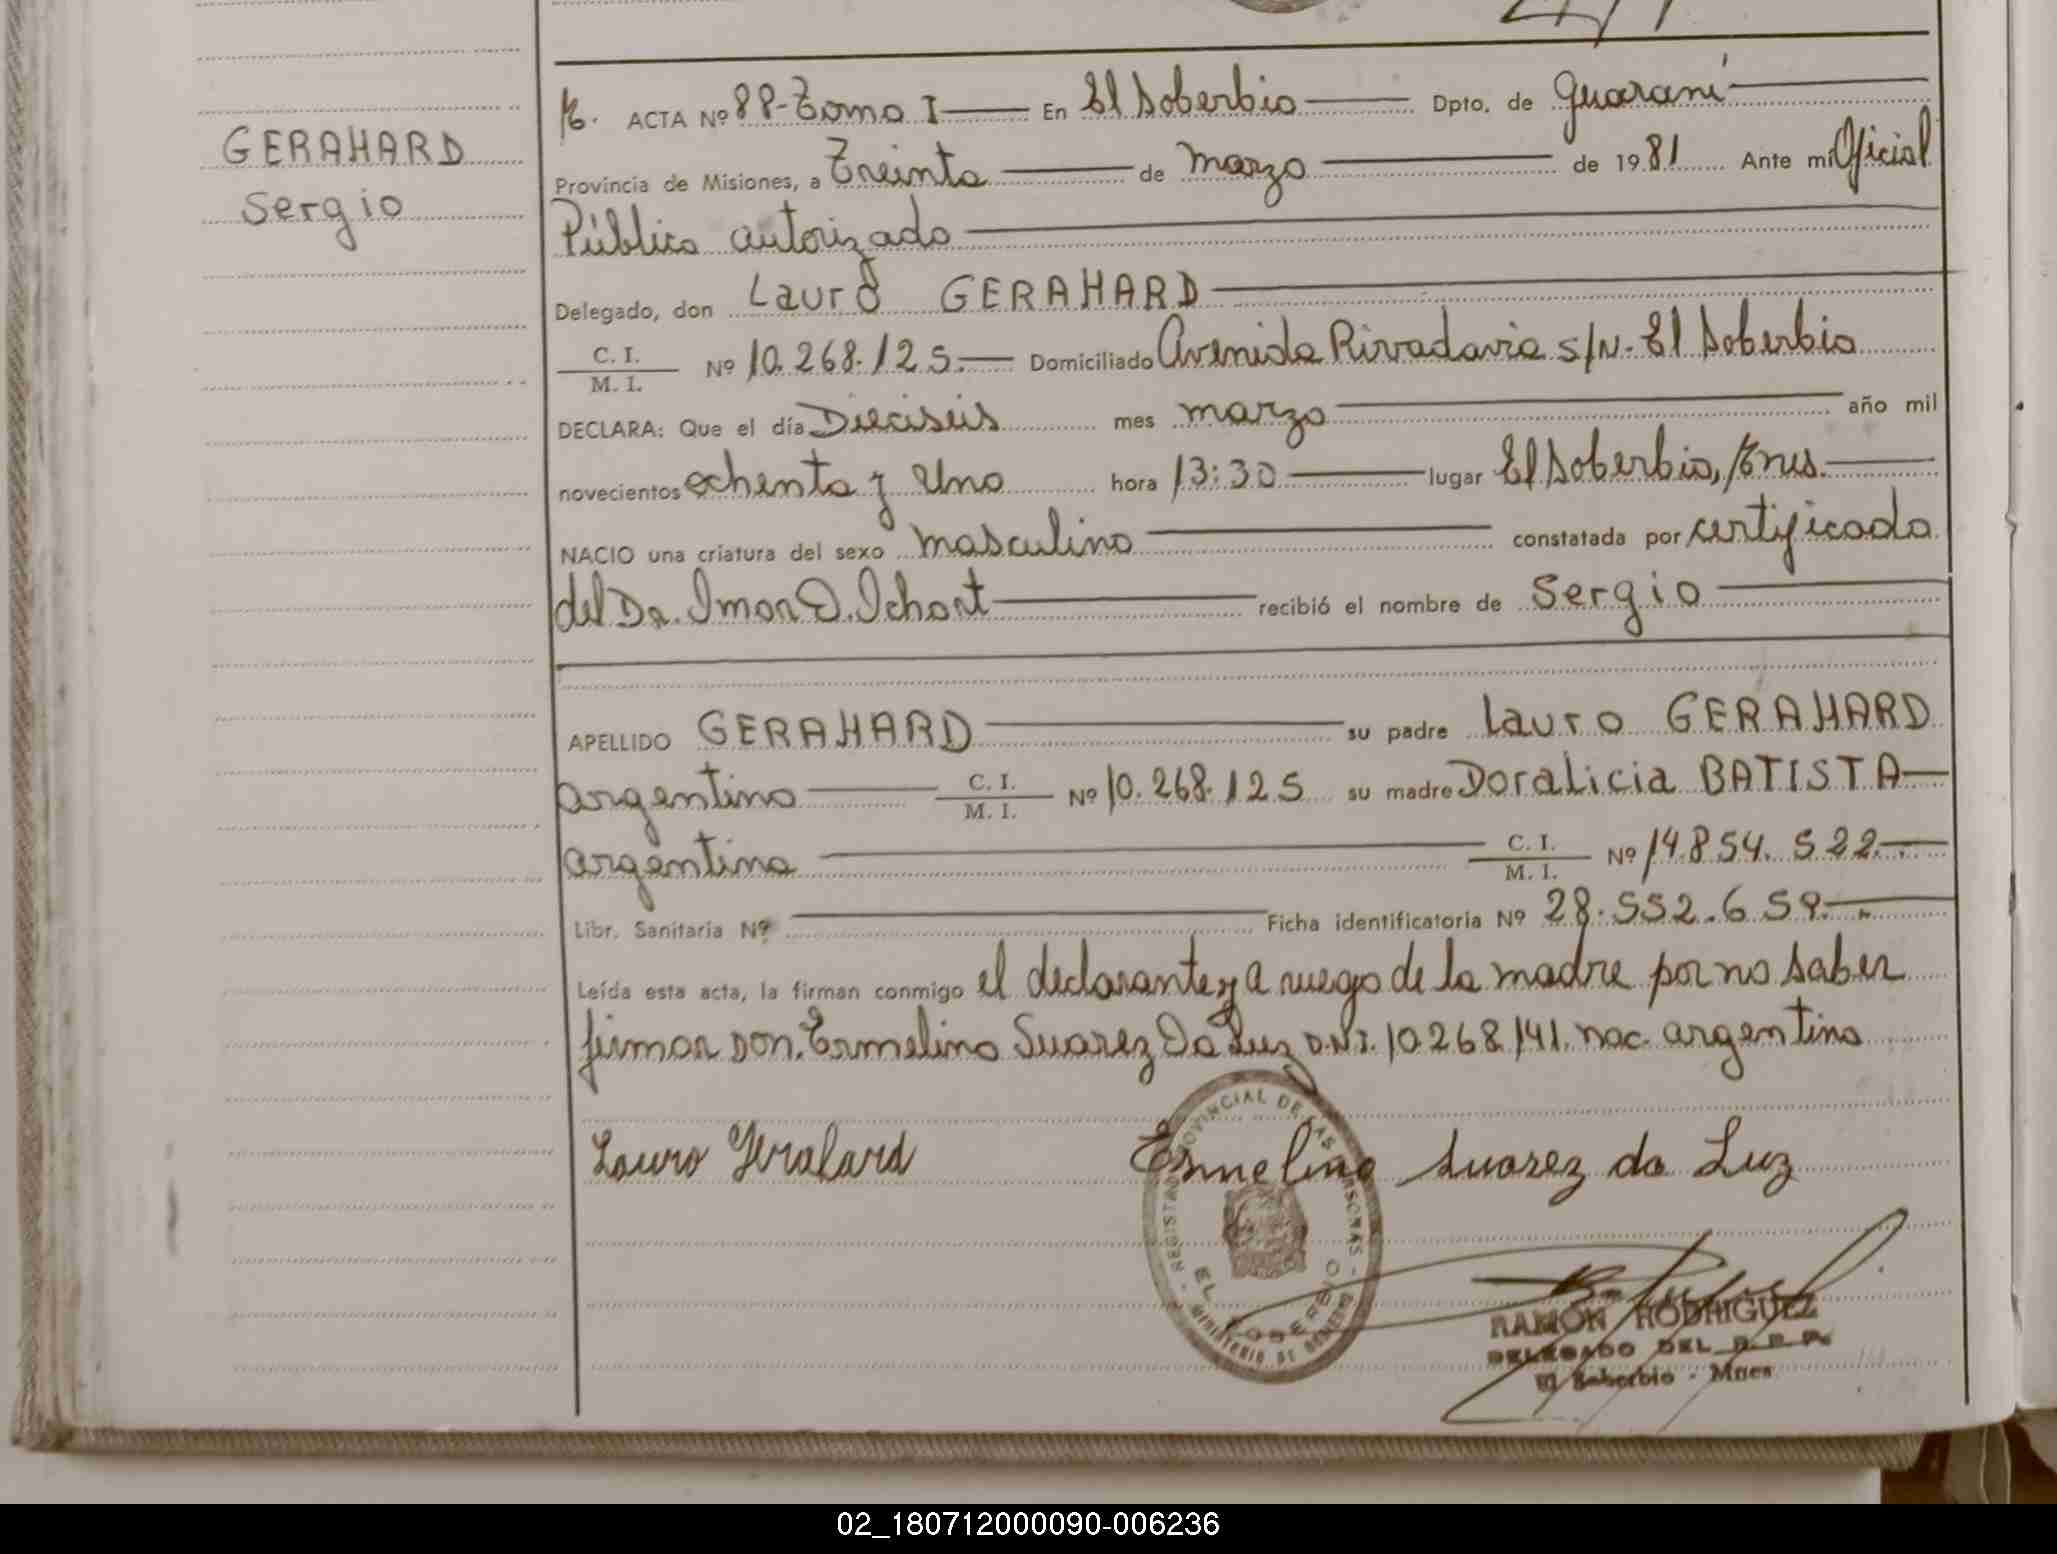 GERAHARD
Sergio
ACTA Nº 88-Tomo I En El Soberbio Dpto. de Guaraní
Provincia de Misiones, a Treinta de Marzo de 1981 Ante mi Oficial
Público autorizado
Delegado, don Lauro GERAHARD
C. I.
M. I. Nº 10.268.125.— Domiciliado Avenida Rivadavia S/N. El Soberbio
DECLARA: Que el día Dieciseis mes marzo año mil
novecientos ochenta y Uno hora 13:30 lugar El Soberbio, Mnes.
NACIO una criatura del sexo masculino constatada por certificado
del Dr. O. Ichart recibió el nombre de Sergio
APELLIDO GERAHARD su padre Lauro GERAHARD
argentino C. I.
M. I. Nº 10.268.125 su madre Doralicia BATISTA
argentina C. I.
M. I. Nº 14.854.522.—
Libr. Sanitaria Nº Ficha identificatoria Nº 28.552.659.—
Leída esta acta, la firman conmigo el declarante y a ruego de la madre por no saber
firmar Don. Ermelino Suarez Da Luz D.N.I. 10.268.141. nac. argentino
Lauro Gerahard Ermelino Suarez da Luz
REGISTRO PROVINCIAL DE LAS PERSONAS - MINISTERIO DE GOBIERNO -
EL SOBERBIO
RAMON RODRIGUEZ
DELEGADO DEL R. P. P.
El Soberbio - Mnes
02_180712000090-006236